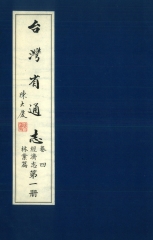 台灣省通志
陳大慶
卷四
經濟志
林業篇
第一册